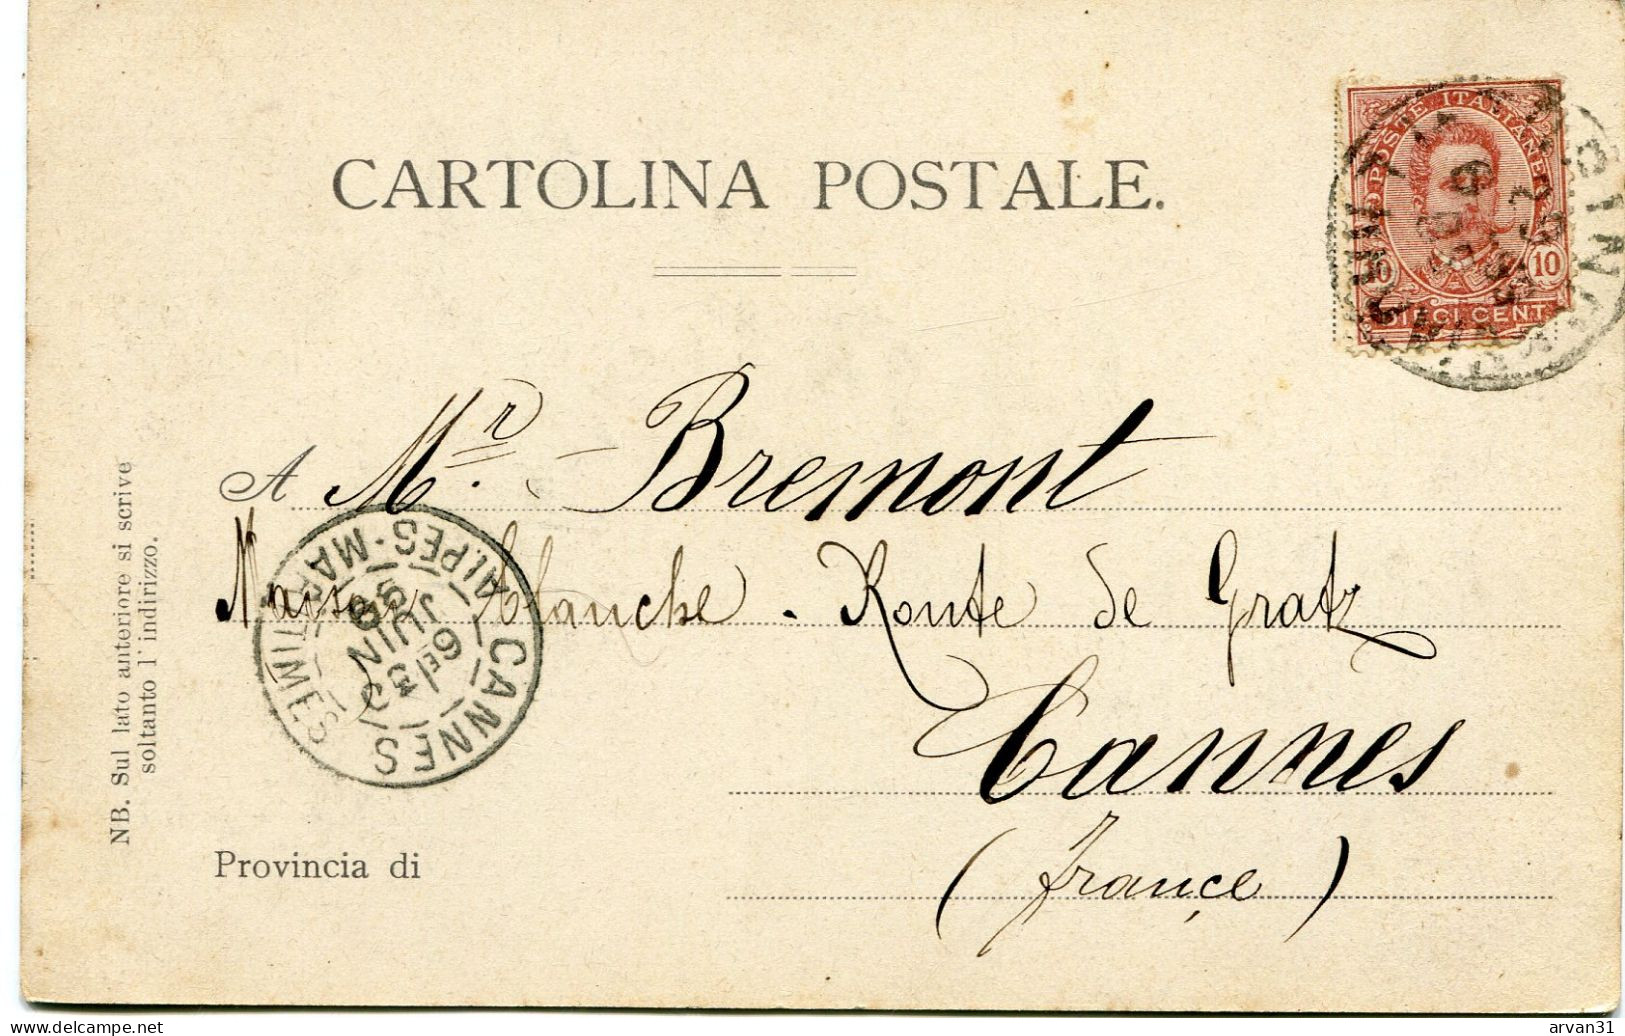 CARTOLINA POSTALE.
POSTE ITALIANE
10 10
DIECI CENT
A Mr. Bremont
Maison Blanche - Route de Gratz
Cannes
(françe)
Provincia di
NB. Sul lato anteriore si scrive
soltanto l' indirizzo.
CANNES
ALPES-MARITIMES
6E
3
JUIN
99
delcampe.net
arvan31